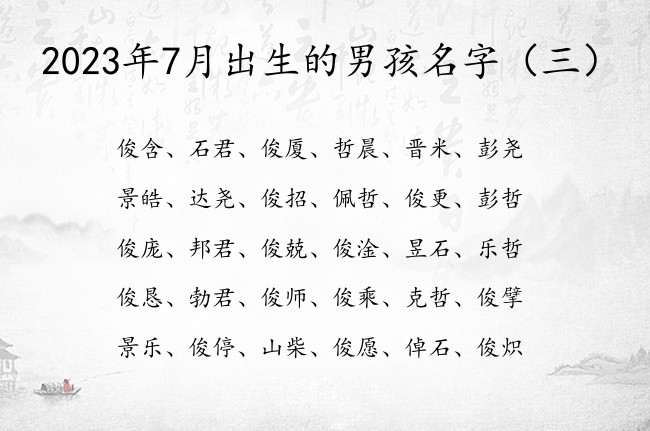 2023年7月出生的男孩名字（三）
俊含、石君、俊厦、哲晨、晋米、彭尧
景皓、达尧、俊招、佩哲、俊更、彭哲
俊庞、邦君、俊兢、俊淦、昱石、乐哲
俊恳、勃君、俊师、俊乘、克哲、俊擘
景乐、俊停、山柴、俊愿、倬石、俊炽